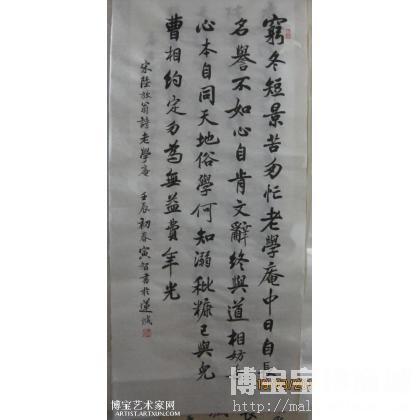 窮冬短景苦匆忙老學庵中日自長
名譽不如心自肯文辭終與道相妨
心本自同天地俗學何知溺秕糠已與兒
曹相約定勿為無益費年光
宋陸放翁詩老學庵 壬辰初春寅智書於蓮城
博宝艺术家网
Artist.artxun.com